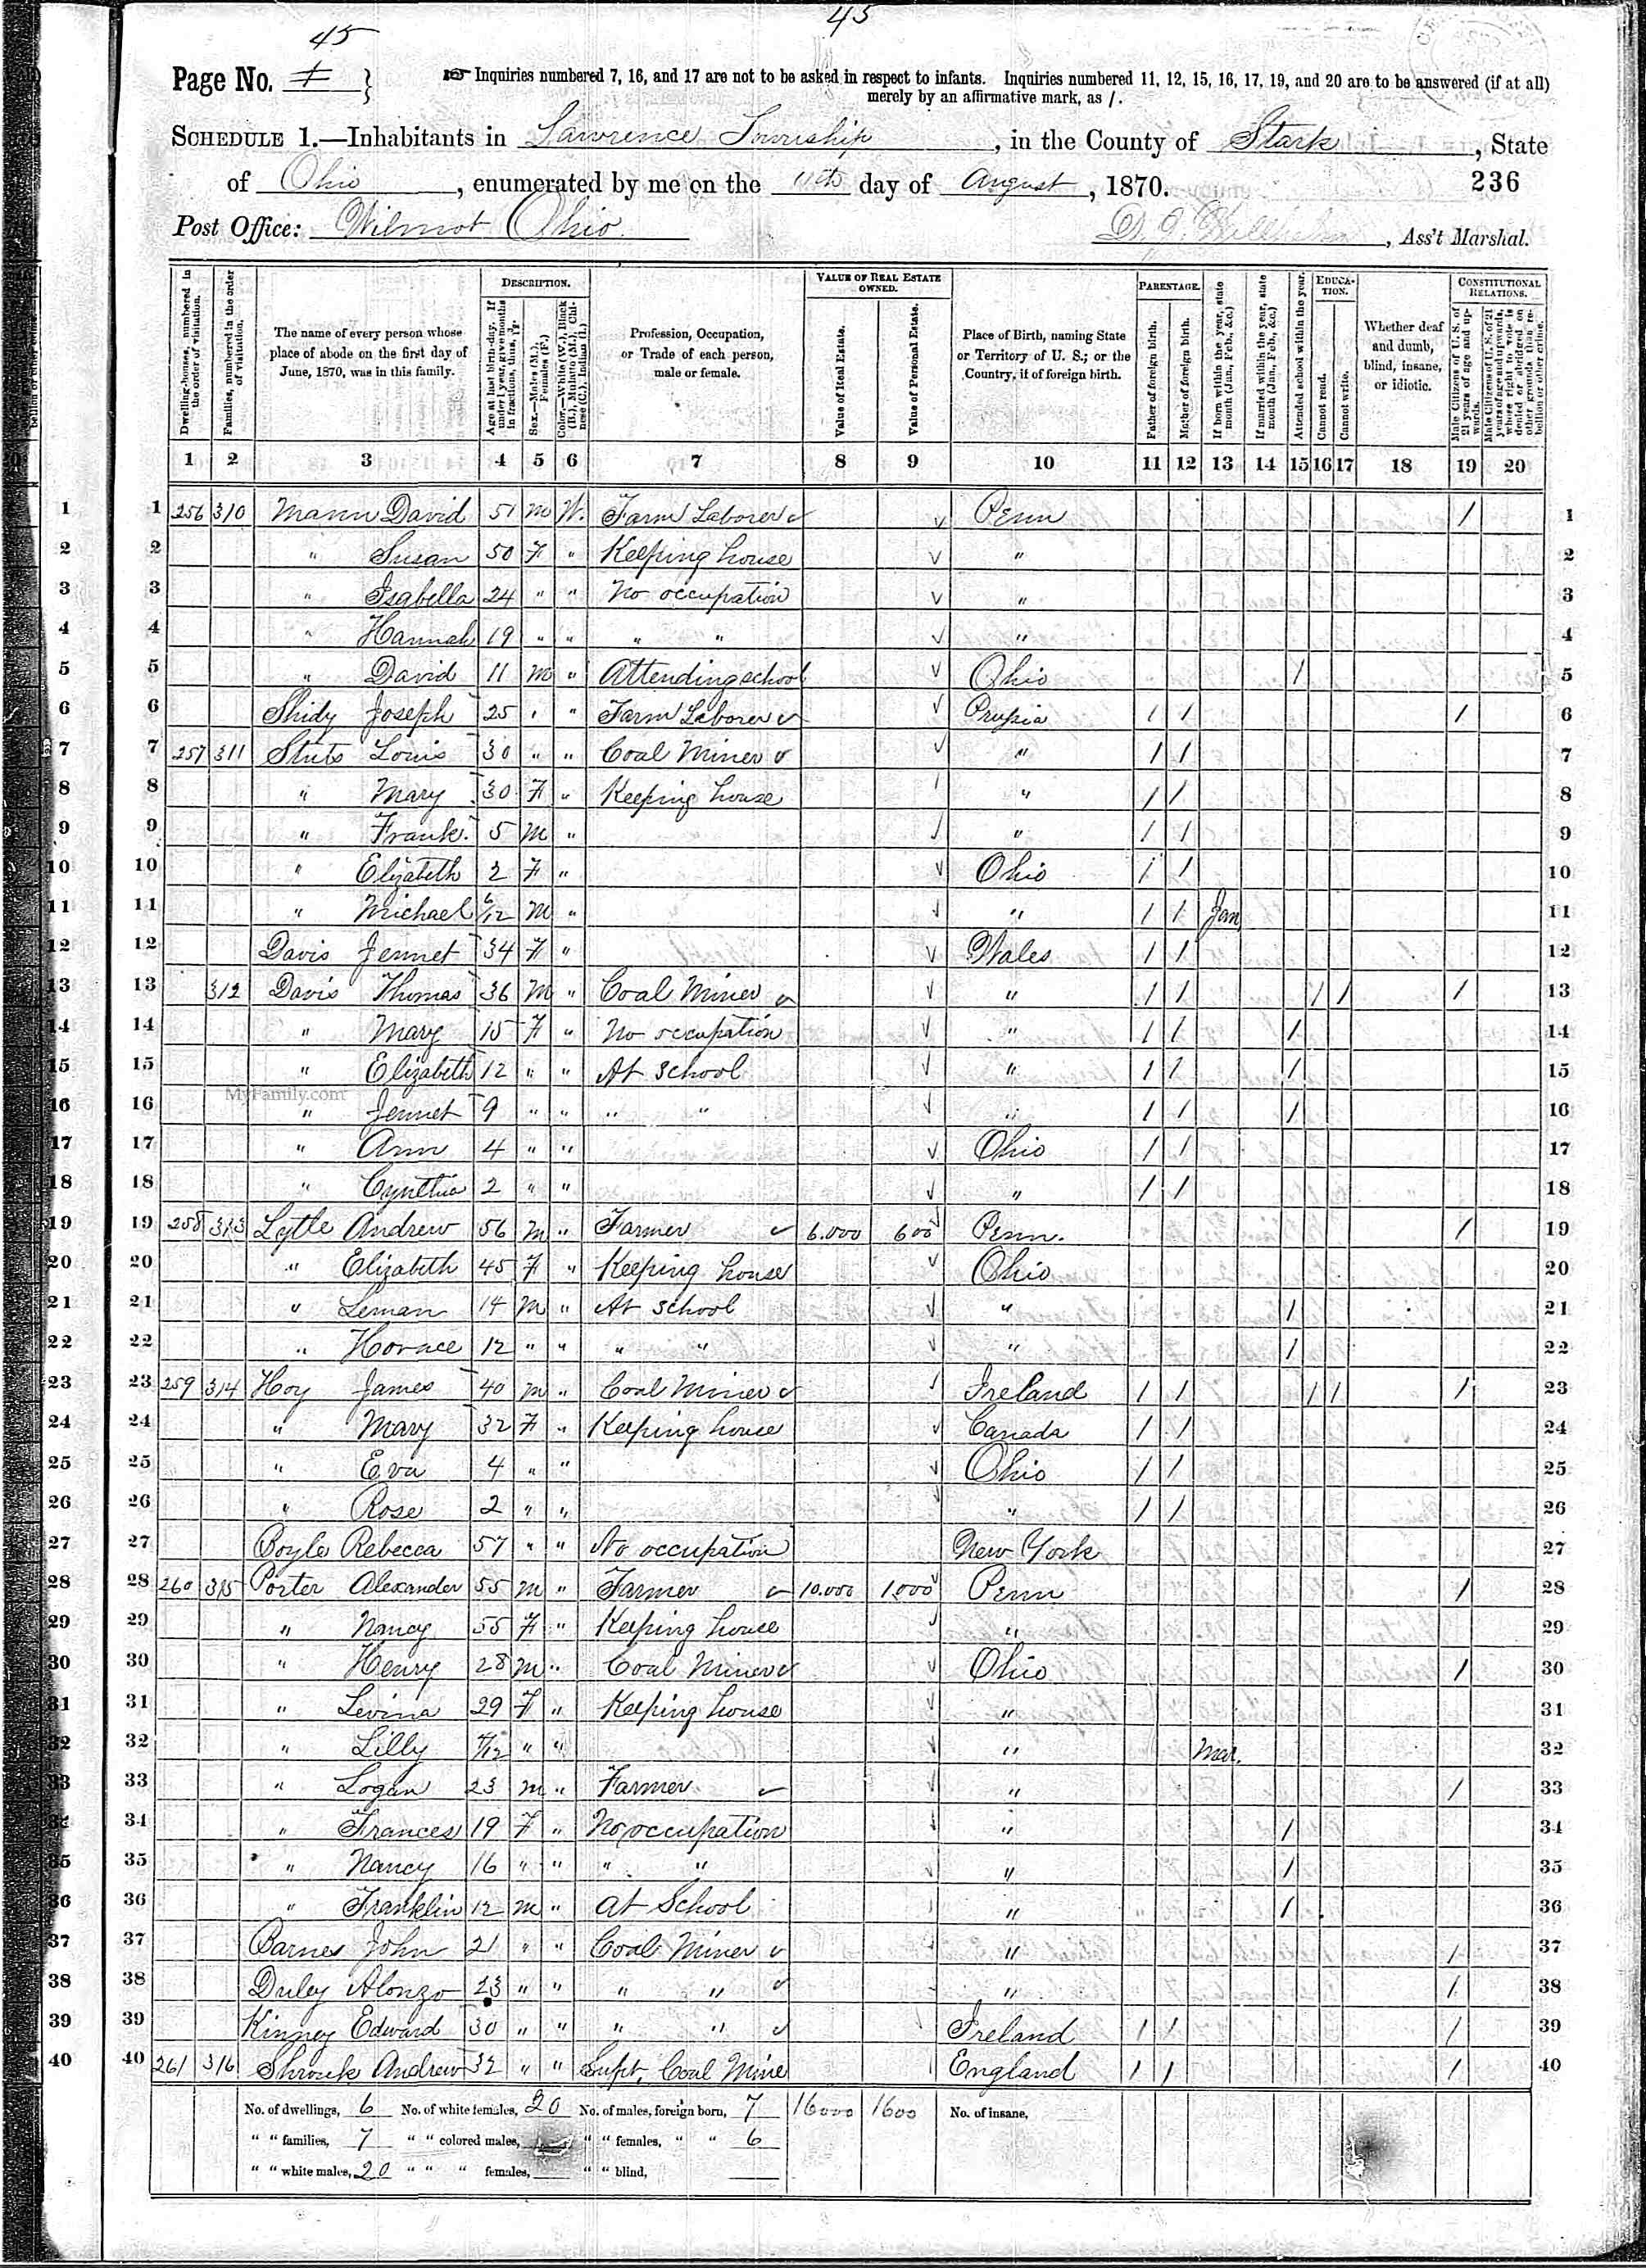 45
45
Page No. 4 }
Inquiries numbered 7, 16, and 17 are not to be asked in respect to infants. Inquiries numbered 11, 12, 15, 16, 17, 19, and 20 are to be answered (if at all)
merely by an affirmative mark, as /.
SCHEDULE 1.—Inhabitants in Lawrence Township, in the County of Stark, State
of Ohio, enumerated by me on the 11th day of August, 1870.
236
Post Office: Wilmot Ohio
, Ass't Marshal.
Dwelling-houses, numbered in the order of visitation.
Families, numbered in the order of visitation.
The name of every person whose place of abode on the first day of June, 1870, was in this family.
DESCRIPTION.
Age at last birth-day. If under 1 year, give months in fractions, thus, 3/12.
Sex.—Males (M.), Females (F.)
Color.—White (W.), Black (B.), Mulatto (M.), Chinese (C.), Indian (I.)
Profession, Occupation, or Trade of each person, male or female.
VALUE OF REAL ESTATE OWNED.
Value of Real Estate.
Value of Personal Estate.
Place of Birth, naming State or Territory of U. S.; or the Country, if of foreign birth.
PARENTAGE.
Father of foreign birth.
Mother of foreign birth.
If born within the year, state month (Jan., Feb., &c.)
If married within the year, state month (Jan., Feb., &c.)
Attended school within the year.
EDUCATION.
Cannot read.
Cannot write.
Whether deaf and dumb, blind, insane, or idiotic.
CONSTITUTIONAL RELATIONS.
Male Citizens of U. S. of 21 years of age and upwards.
Male Citizens of U. S. of 21 years of age and upwards, whose right to vote is denied or abridged on other grounds than rebellion or other crime.
1 2 3 4 5 6 7 8 9 10 11 12 13 14 15 16 17 18 19 20
1 1 256 310 Mann David 51 M W. Farm Laborer Penn / 1
2 2 " Susan 50 F " Keeping house " 2
3 3 " Isabella 24 " " No occupation " 3
4 4 " Hannah 19 " " " " " 4
5 5 " David 11 M " Attending school Ohio / 5
6 6 Shidy Joseph 25 " " Farm Laborer Prussia / / / 6
7 7 257 311 Stuts Louis 30 " " Coal Miner " / / 7
8 8 " Mary 30 F " Keeping house " / / 8
9 9 " Frank 5 M " " / / 9
10 10 " Elizabeth 2 F " Ohio / / 10
11 11 " Michael 6/12 M " " / / Jan 11
12 12 Davis Jennet 34 F " Wales / / 12
13 13 312 Davis Thomas 36 M " Coal Miner " / / / / / 13
14 14 " Mary 15 F " No occupation " / / / 14
15 15 " Elizabeth 12 " " At School " / / / 15
MyFamily.com
16 16 " Jennet 9 " " " " " / / / 16
17 17 " Ann 4 " " Ohio / / 17
18 18 " Cynthia 2 " " " / / 18
19 19 258 313 Lytle Andrew 56 M " Farmer 6.000 600 Penn. / 19
20 20 " Elizabeth 45 F " Keeping house Ohio 20
21 21 " Leman 14 M " At school " / 21
22 22 " Horace 12 " " " " " / 22
23 23 259 314 Hoy James 40 M " Coal Miner Ireland / / / / / 23
24 24 " Mary 32 F " Keeping house Canada / / 24
25 25 " Eva 4 " " Ohio / / 25
26 26 " Rose 2 " " " / / 26
27 27 Boyle Rebecca 57 " " No occupation New York 27
28 28 260 315 Porter Alexander 55 M " Farmer 10.000 1000 Penn / 28
29 29 " Nancy 55 F " Keeping house " 29
30 30 " Henry 28 M " Coal Miner Ohio / 30
31 31 " Levina 29 F " Keeping house " 31
32 32 " Lilly /12 " " " Mar. 32
33 33 " Logan 23 M " Farmer " / 33
34 34 " Frances 19 F " No occupation " / 34
35 35 " Nancy 16 " " " " " / 35
36 36 " Franklin 12 M " At School " / 36
37 37 Barnes John 21 " " Coal Miner " / 37
38 38 Duley Alonzo 23 " " " " " / 38
39 39 Kinney Edward 30 " " " " Ireland / / / 39
40 40 261 316 Shrouk Andrew 32 " " Supt. Coal Mine England / / / 40
No. of dwellings, 6 No. of white females, 20 No. of males, foreign born, 7 16000 1600 No. of insane,
" " families, 7 " " colored males, " " females, " " 6
" " white males, 20 " " " females, " " blind,